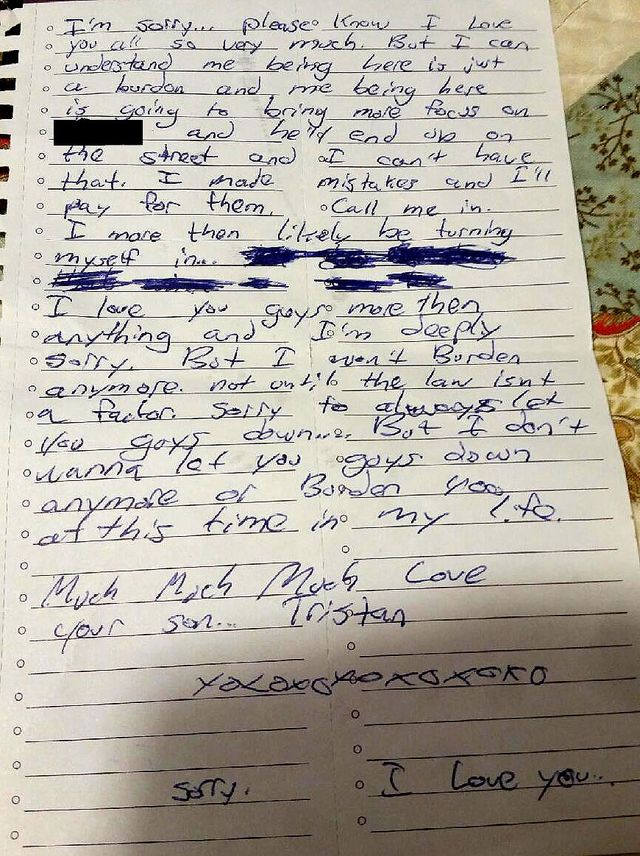 I'm sorry... please know I Love
you all so very much. But I can
understand me being here is just
a burdon and me being here
is going to bring more focus on
and he'd end up on
the street and I can't have
that. I made mistakes and I'll
pay for them. Call me in.
I more then likely be turning
myself in...
I love you guys more then
anything and I'm deeply
sorry. But I won't Burden
anymore. not until the law isnt
a factor. Sorry to always let
you guys down.... But I don't
wanna let you guys down
anymore or Burden you
at this time in my life.
Much Much Much Love
your son... Tristan
xoxoxoxoxoxoxo
sorry. I Love you...